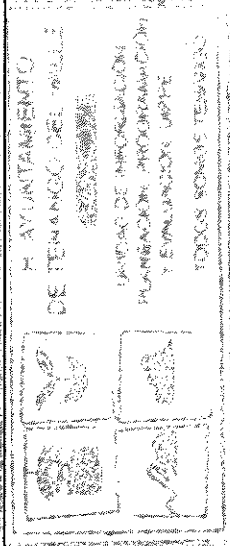 H. AYUNTAMIENTO
DE TENANGO DEL VALLE
UNIDAD DE INFORMACIÓN
PLANEACIÓN, PROGRAMACIÓN
Y EVALUACIÓN UIPPE
TODOS SOMOS TENANGO